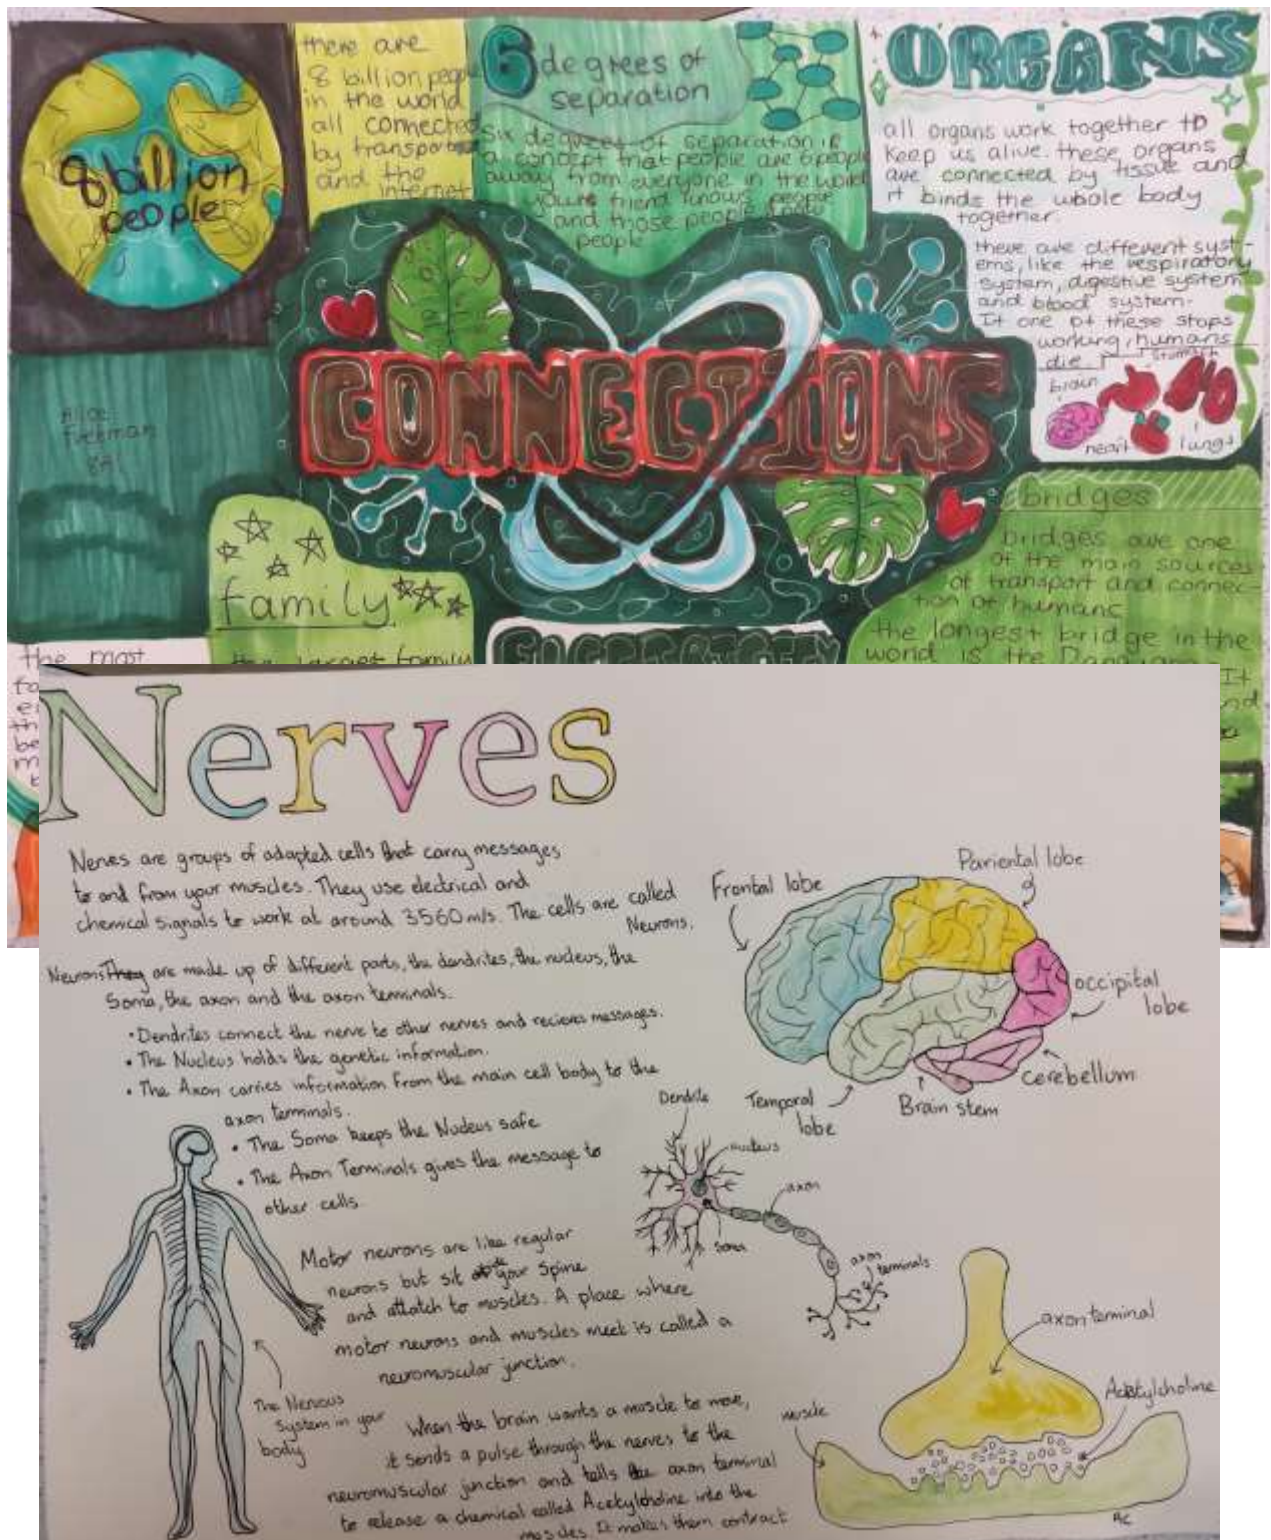 8 billion
people
there are
8 billion people
in the world
all connected
by transport
and the
internet
6 degrees of
separation
six degrees of separation is
a concept that people are 6 people
away from everyone in the world
your friend knows people
and those people know
people
ORGANS
all organs work together to
keep us alive. these organs
are connected by tissue and
it binds the whole body
together.
there are different syst-
ems, like the respiratory
system, digestive system
and blood system.
If one of these stops
working, humans
die.
stomach
brain
heart
lungs
CONNECTIONS
Alice
Freeman
8A1
family
the largest family
the most
bridges
bridges are one
of the main sources
of transport and connec-
tion of humans
the longest bridge in the
world is the
It
Nerves
Nerves are groups of adapted cells that carry messages
to and from your muscles. They use electrical and
chemical signals to work at around 3560 m/s. The cells are called
Neurons.
Neurons They are made up of different parts, the dendrites, the nucleus, the
Soma, the axon and the axon terminals.
• Dendrites connect the nerve to other nerves and recieves messages.
• The Nucleus holds the genetic information.
• The Axon carries information from the main cell body to the
axon terminals.
• The Soma keeps the Nucleus safe
• The Axon Terminals gives the message to
other cells.
Motor neurons are like regular
neurons but sit your spine
and attatch to muscles. A place where
motor neurons and muscles meet is called a
neuromuscular junction.
When the brain wants a muscle to move,
it sends a pulse through the nerves to the
neuromuscular junction and tells the axon terminal
to release a chemical called Acetylcholine into the
muscles. It makes them contract
The Nervous
System in your
body
Frontal lobe
Pariental lobe
occipital
lobe
cerebellum
Brain stem
Temporal
lobe
Dendrite
nucleus
axon
Soma
axon
terminals
axon terminal
Acetylcholine
muscle
AC